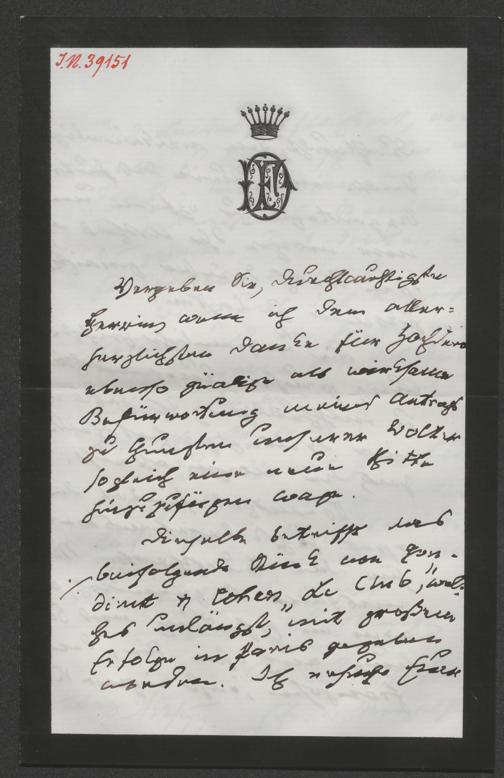 I.N. 39151
Vergeben Sie, durchlauchtigste
Herrin, wenn ich dem aller-
herzlichsten Danke für Hochdero
ebenso gütige als wirksame
Befürwortung meines Antrags
zu Gunsten unserer Wolter
sogleich eine neue Bitte
hinzuzufügen wage.
Dieselbe betrifft das
beifolgende Stück von Gon-
dinet & Cohen Le Club, wel-
ches unlängst, mit großem
Erfolge in Paris gegeben
worden. Ich